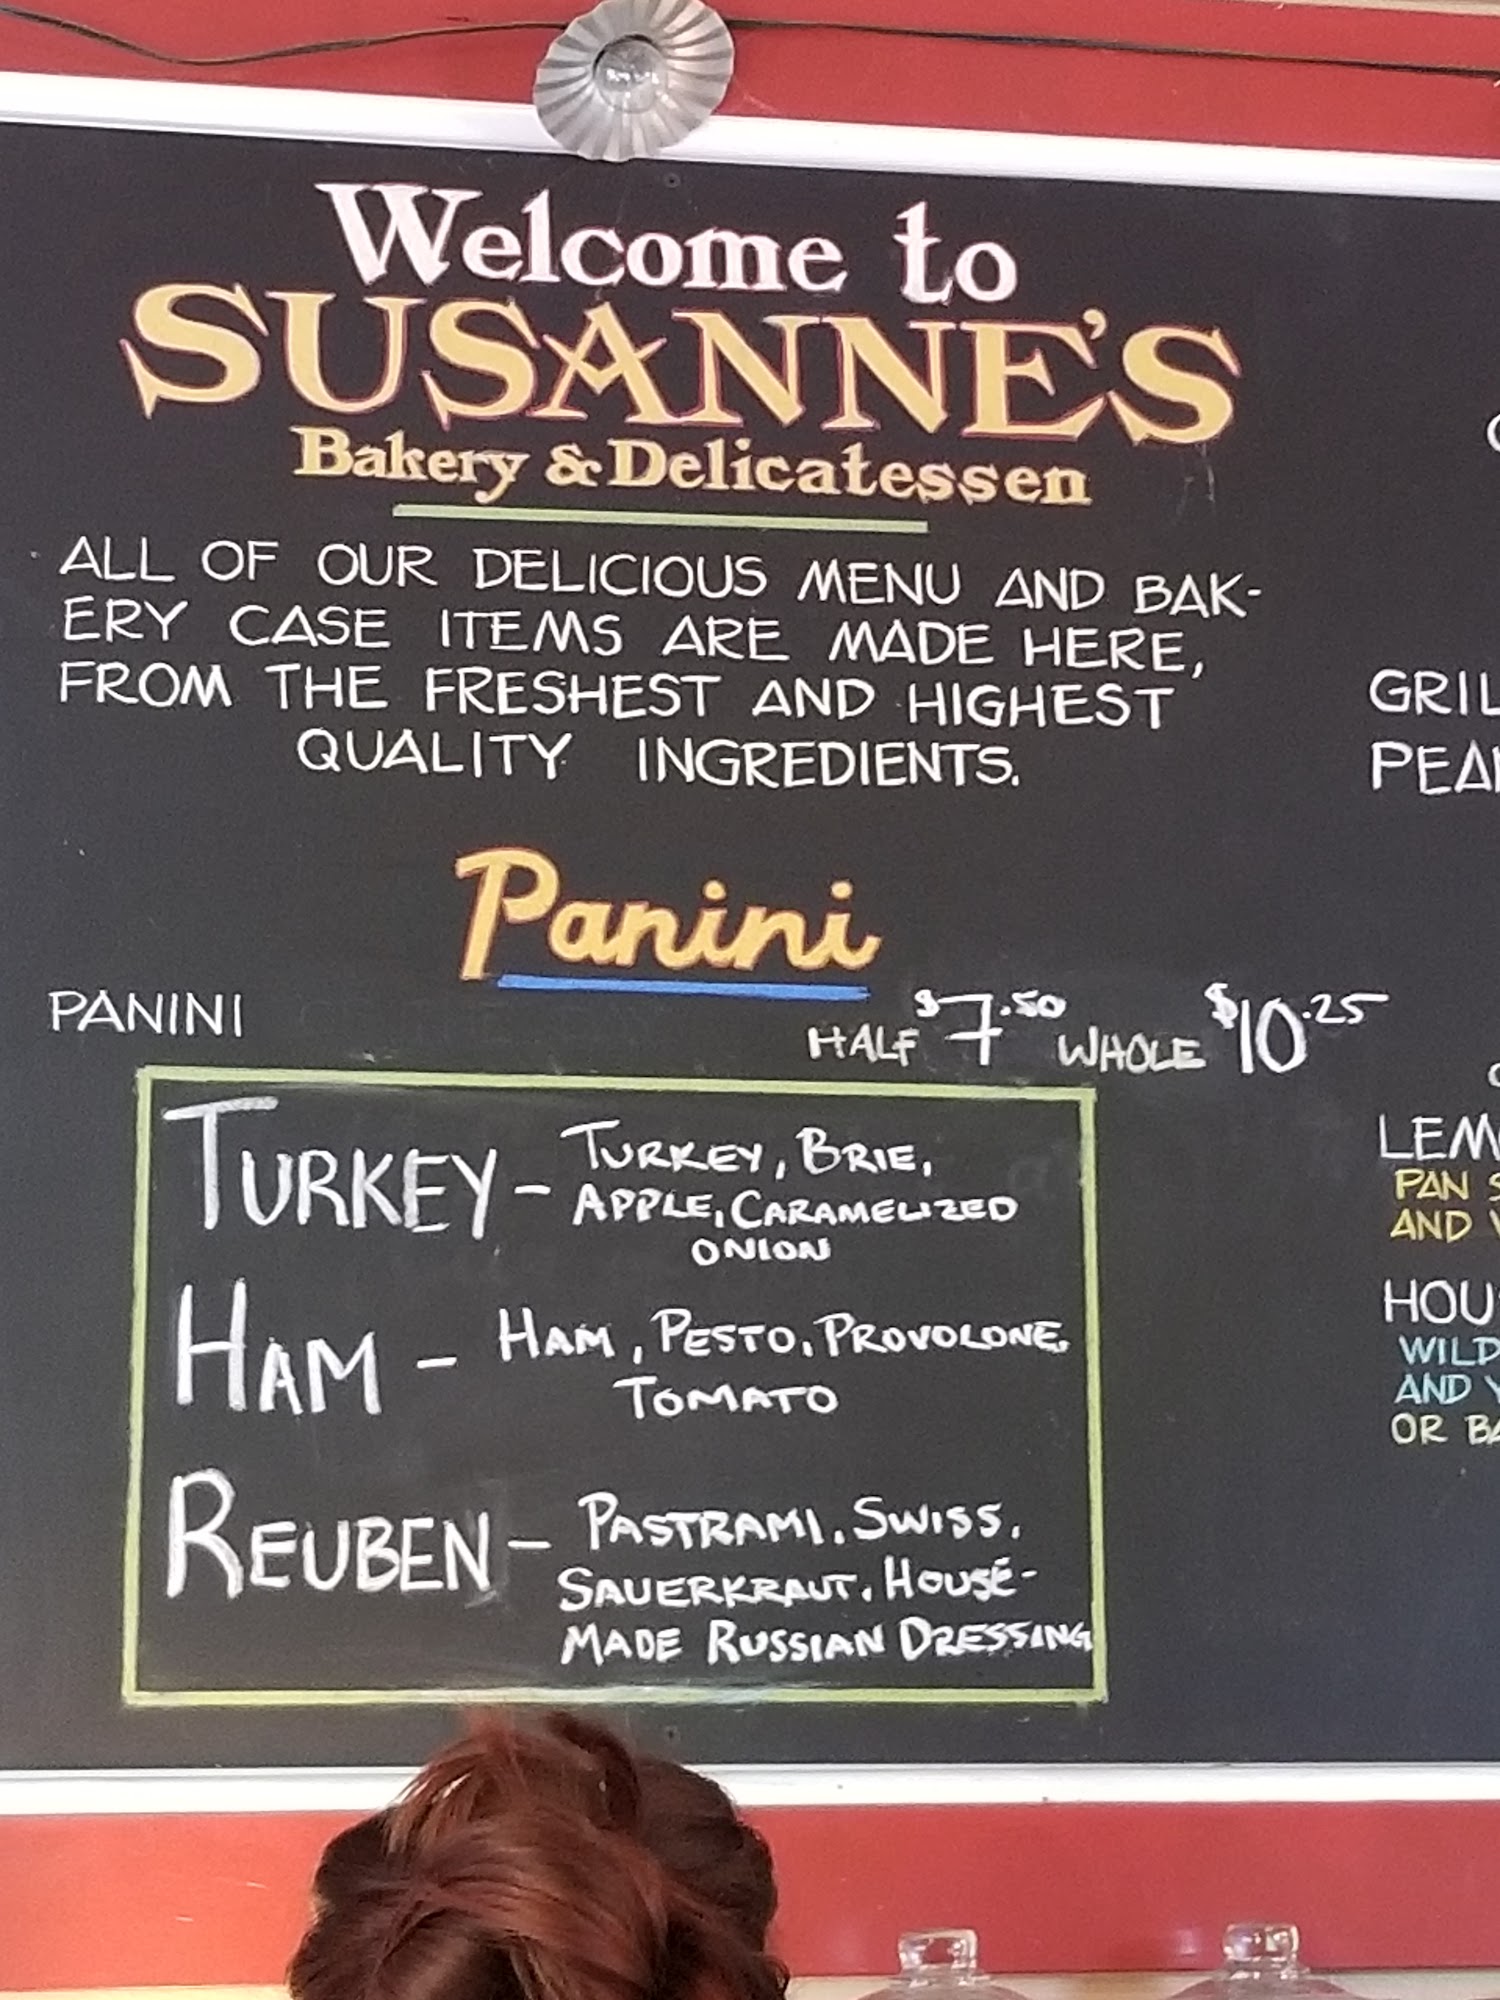 Welcome to
SUSANNE'S
Bakery & Delicatessen
ALL OF OUR DELICIOUS MENU AND BAK-
ERY CASE ITEMS ARE MADE HERE,
FROM THE FRESHEST AND HIGHEST
QUALITY INGREDIENTS.
Panini
PANINI HALF $7.50 WHOLE $10.25
TURKEY - TURKEY, BRIE,
APPLE, CARAMELIZED
ONION
HAM - HAM, PESTO, PROVOLONE,
TOMATO
REUBEN - PASTRAMI, SWISS,
SAUERKRAUT, HOUSE-
MADE RUSSIAN DRESSING
PAN
AND
WILD
AND
OR